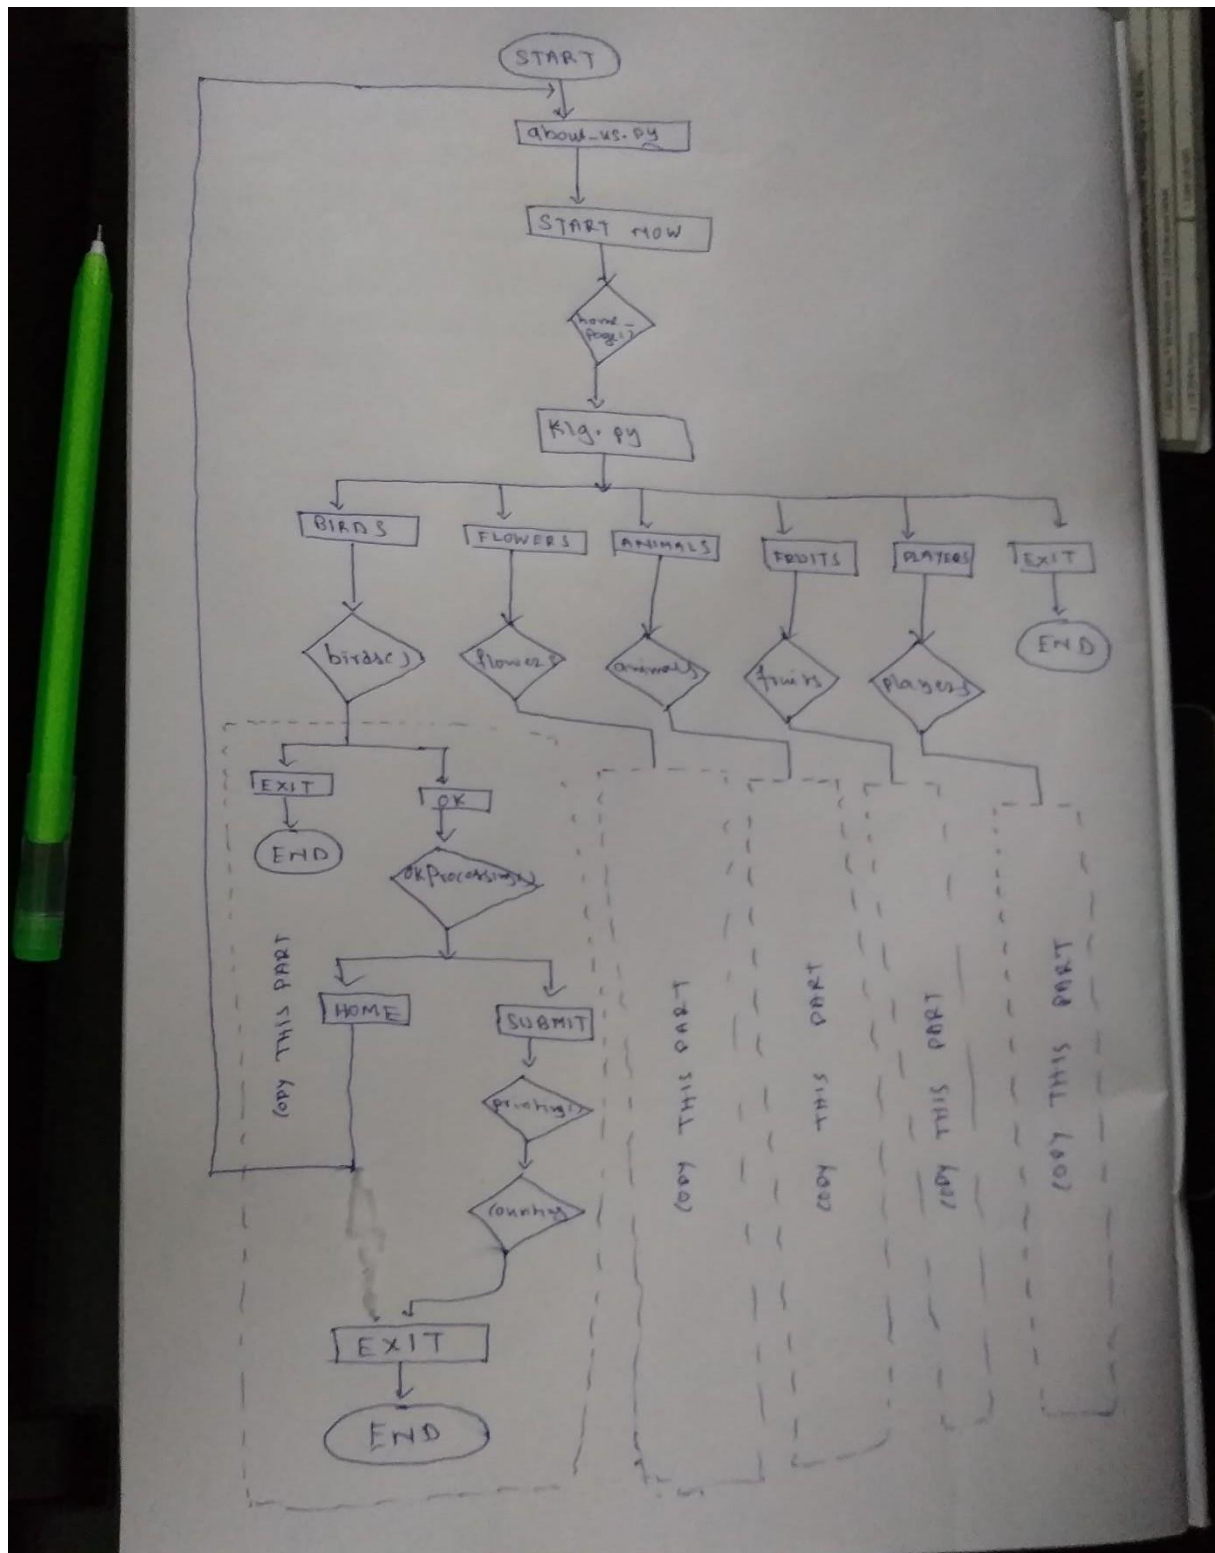 START
about_us.py
START NOW
home_
page()
Klg.py
BIRDS
FLOWERS
ANIMALS
FRUITS
PLAYERS
EXIT
birds()
flowers
animals
fruits
players
END
EXIT
OK
END
okProcessing()
COPY THIS PART
HOME
SUBMIT
printing()
counting
EXIT
END
COPY THIS PART
COPY THIS PART
COPY THIS PART
COPY THIS PART